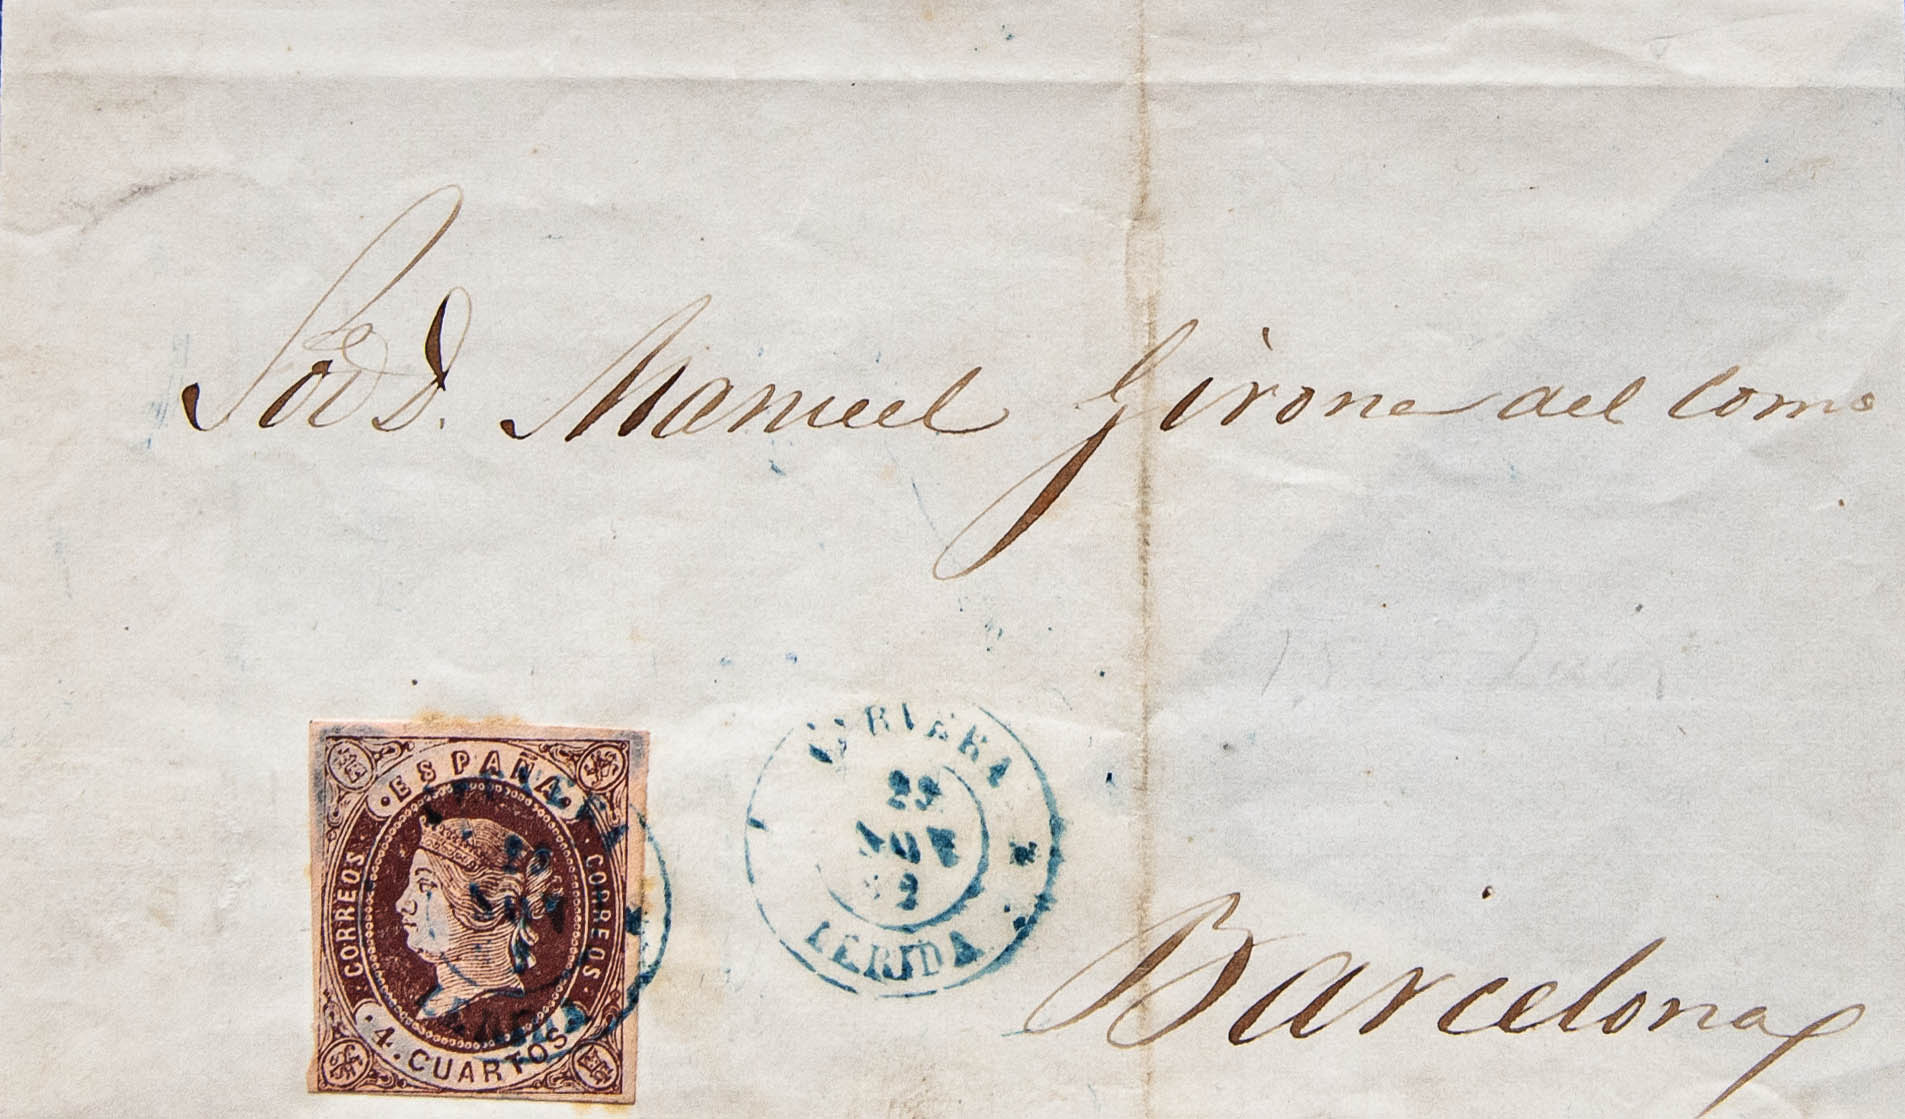 Sor D. Manuel Girona del Como
ESPAÑA
CORREOS
CORREOS
4. CUARTOS
CERVERA
29
NOV
62
LERIDA
Barcelona